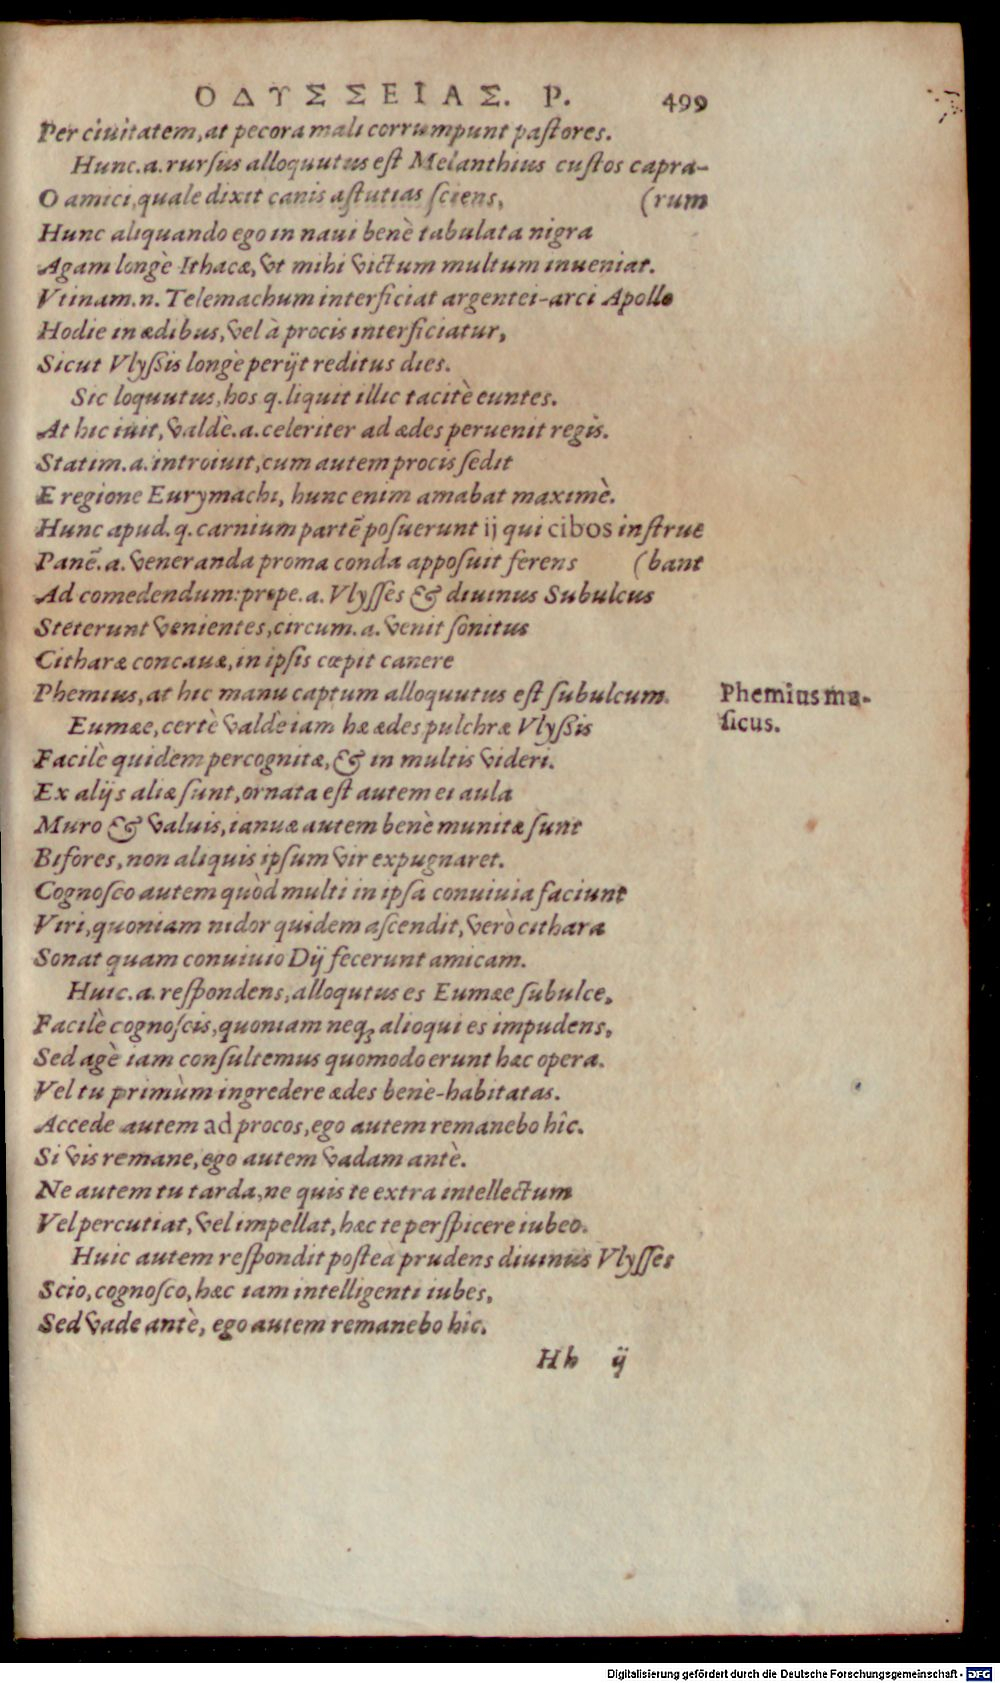 ΟΔΥΣΣΕΙΑΣ. Ρ. 499
Per ciuitatem, at pecora mali corrumpunt pastores.
Hunc.a. rursus alloquutus est Melanthius custos capra-
O amici, quale dixit canis astutias sciens, (rum
Hunc aliquando ego in naui benè tabulata nigra
Agam longè Ithacæ, vt mihi victum multum inueniat.
Vtinam.n. Telemachum interficiat argentei-arci Apollo
Hodie in ædibus, vel à procis interficiatur,
Sicut Vlyssis longè perijt reditus dies.
Sic loquutus, hos q. liquit illic tacitè euntes.
At hic iuit, valdè.a. celeriter ad ædes peruenit regis.
Statim.a. introiuit, cum autem procis sedit
E regione Eurymachi, hunc enim amabat maximè.
Hunc apud.q. carnium partē posuerunt ij qui cibos instrue
Panē.a. veneranda proma conda apposuit ferens (bant
Ad comedendum: prope.a. Vlysses & diuinus Subulcus
Steterunt venientes, circum.a. venit sonitus
Citharæ concauæ, in ipsis cœpit canere
Phemius, at hic manu captum alloquutus est subulcum.
Phemius mu-
sicus.
Eumæe, certè valdè iam hæ ædes pulchræ Vlyssis
Facilè quidem percognitæ, & in multis videri.
Ex alijs aliæ sunt, ornata est autem ei aula
Muro & valuis, ianuæ autem benè munitæ sunt
Bifores, non aliquis ipsum vir expugnaret.
Cognosco autem quòd multi in ipsa conuiuia faciunt
Viri, quoniam nidor quidem ascendit, verò cithara
Sonat quam conuiuio Dij fecerunt amicam.
Huic.a. respondens, alloqutus es Eumæe subulce,
Facilè cognoscis, quoniam neq; alioqui es impudens,
Sed agè iam consultemus quomodo erunt hæc opera.
Vel tu primùm ingredere ædes benè-habitatas.
Accede autem ad procos, ego autem remanebo hîc.
Si vis remane, ego autem vadam antè.
Ne autem tu tarda, ne quis te extra intellectum
Vel percutiat, vel impellat, hæc te perspicere iubeo.
Huic autem respondit postea prudens diuinus Vlysses
Scio, cognosco, hæc iam intelligenti iubes,
Sed vade antè, ego autem remanebo hîc.
Hh ij
Digitalisierung gefördert durch die Deutsche Forschungsgemeinschaft - DFG